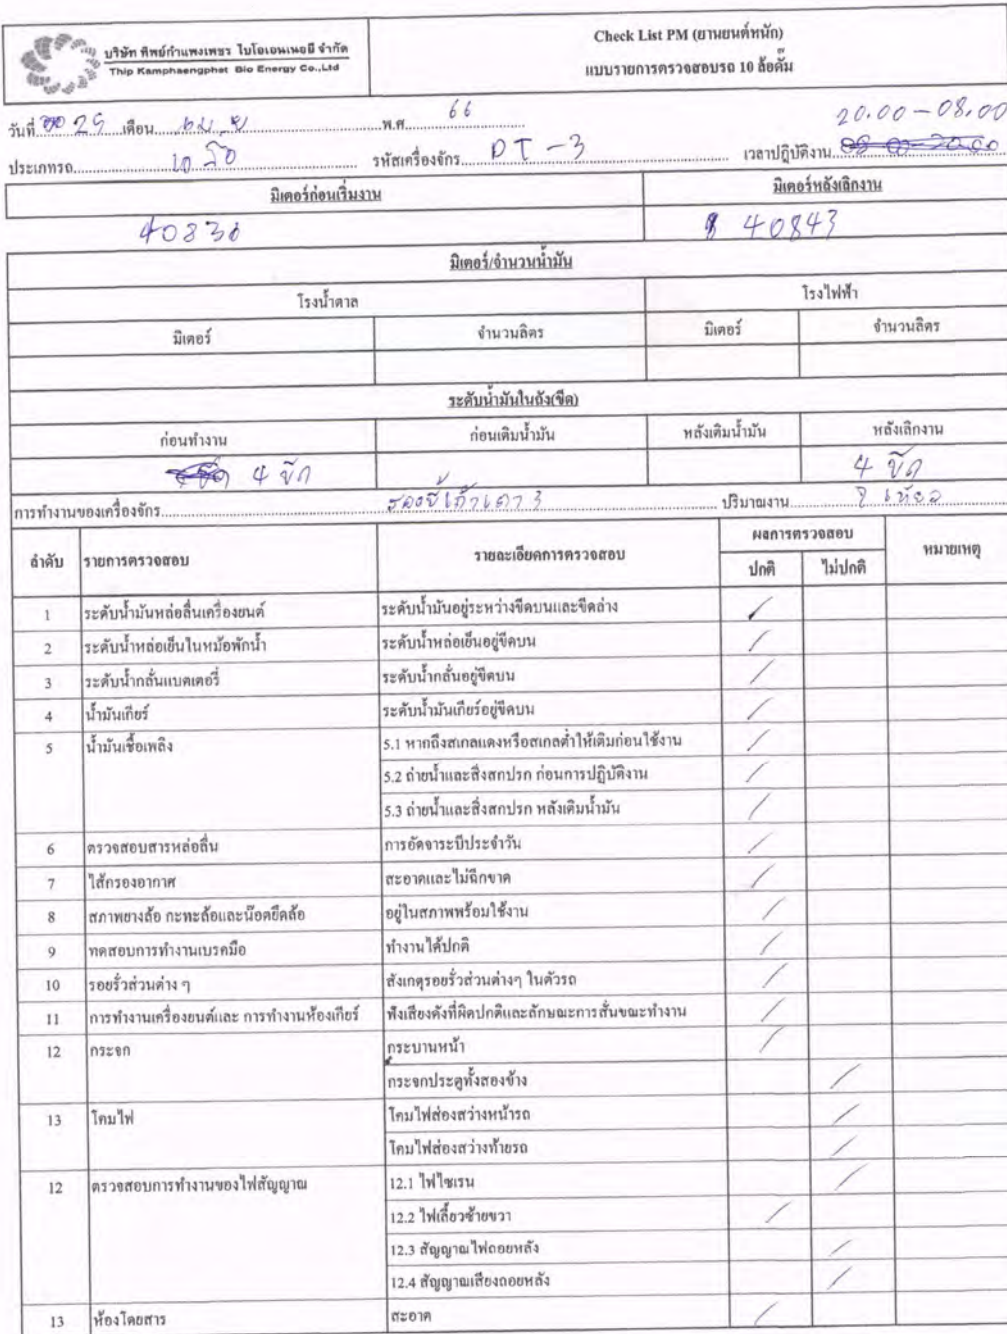 บริษัท ทิพย์กำแพงเพชร ไบโอเอนเนอยี จำกัด
Thip Kamphaengphet Bio Energy Co.,Ltd
Check List PM (ยานยนต์หนัก)
แบบรายการตรวจสอบรถ 10 ล้อดั๊ม
วันที่ 29 เดือน เม.ย พ.ศ. 66 20.00-08.00
ประเภทรถ 10 ล้อ รหัสเครื่องจักร DT-3 เวลาปฏิบัติงาน
มิเตอร์ก่อนเริ่มงาน มิเตอร์หลังเลิกงาน
40830 40843
มิเตอร์/จำนวนน้ำมัน
โรงน้ำตาล โรงไฟฟ้า
มิเตอร์ จำนวนลิตร มิเตอร์ จำนวนลิตร
ระดับน้ำมันในถัง(ขีด)
ก่อนทำงาน ก่อนเติมน้ำมัน หลังเติมน้ำมัน หลังเลิกงาน
4 ขีด 4 ขีด
การทำงานของเครื่องจักร รองขี้เถ้าเตา 3 ปริมาณงาน เที่ยว
ลำดับ รายการตรวจสอบ รายละเอียดการตรวจสอบ ผลการตรวจสอบ หมายเหตุ
ปกติ ไม่ปกติ
1 ระดับน้ำมันหล่อลื่นเครื่องยนต์ ระดับน้ำมันอยู่ระหว่างขีดบนและขีดล่าง /
2 ระดับน้ำหล่อเย็นในหม้อพักน้ำ ระดับน้ำหล่อเย็นอยู่ขีดบน /
3 ระดับน้ำกลั่นแบตเตอรี่ ระดับน้ำกลั่นอยู่ขีดบน /
4 น้ำมันเกียร์ ระดับน้ำมันเกียร์อยู่ขีดบน /
5 น้ำมันเชื้อเพลิง 5.1 หากถึงสเกลแดงหรือสเกลต่ำให้เติมก่อนใช้งาน /
5.2 ถ่ายน้ำและสิ่งสกปรก ก่อนการปฏิบัติงาน /
5.3 ถ่ายน้ำและสิ่งสกปรก หลังเติมน้ำมัน /
6 ตรวจสอบสารหล่อลื่น การอัดจาระบีประจำวัน /
7 ไส้กรองอากาศ สะอาดและไม่ฉีกขาด /
8 สภาพยางล้อ กะทะล้อและน๊อตยึดล้อ อยู่ในสภาพพร้อมใช้งาน /
9 ทดสอบการทำงานเบรคมือ ทำงานได้ปกติ /
10 รอยรั่วส่วนต่าง ๆ สังเกตุรอยรั่วส่วนต่างๆ ในตัวรถ /
11 การทำงานเครื่องยนต์และ การทำงานห้องเกียร์ ฟังเสียงดังที่ผิดปกติและลักษณะการสั่นขณะทำงาน /
12 กระจก กระบานหน้า /
กระจกประตูทั้งสองข้าง /
13 โคมไฟ โคมไฟส่องสว่างหน้ารถ /
โคมไฟส่องสว่างท้ายรถ /
12 ตรวจสอบการทำงานของไฟสัญญาณ 12.1 ไฟไซเรน /
12.2 ไฟเลี้ยวซ้ายขวา /
12.3 สัญญาณไฟถอยหลัง /
12.4 สัญญาณเสียงถอยหลัง /
13 ห้องโดยสาร สะอาด /